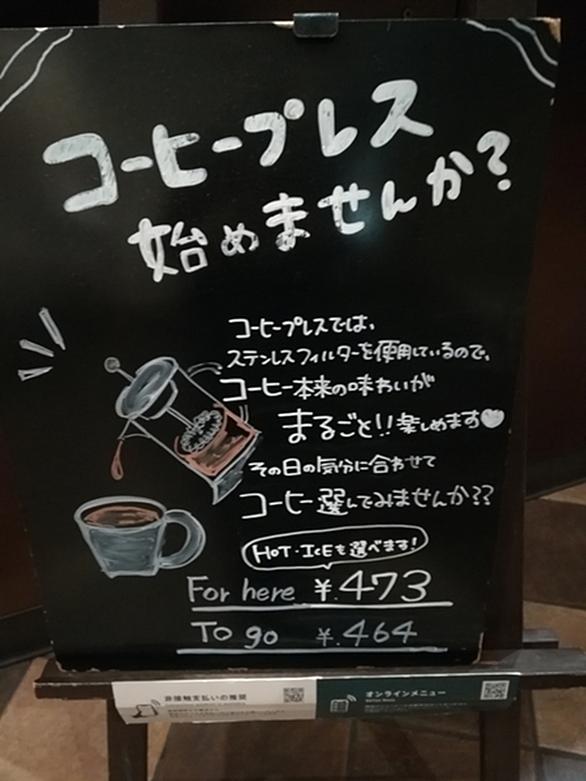 コーヒープレス
始めませんか？
コーヒープレスでは、
ステンレスフィルターを使用しているので、
コーヒー本来の味わいが
まるごと!!楽しめます♥
その日の気分に合わせて
コーヒー選んでみませんか??
HOT・ICEも選べます!
For here ¥.473
To go ¥.464
非接触支払いの推奨
オンラインメニュー